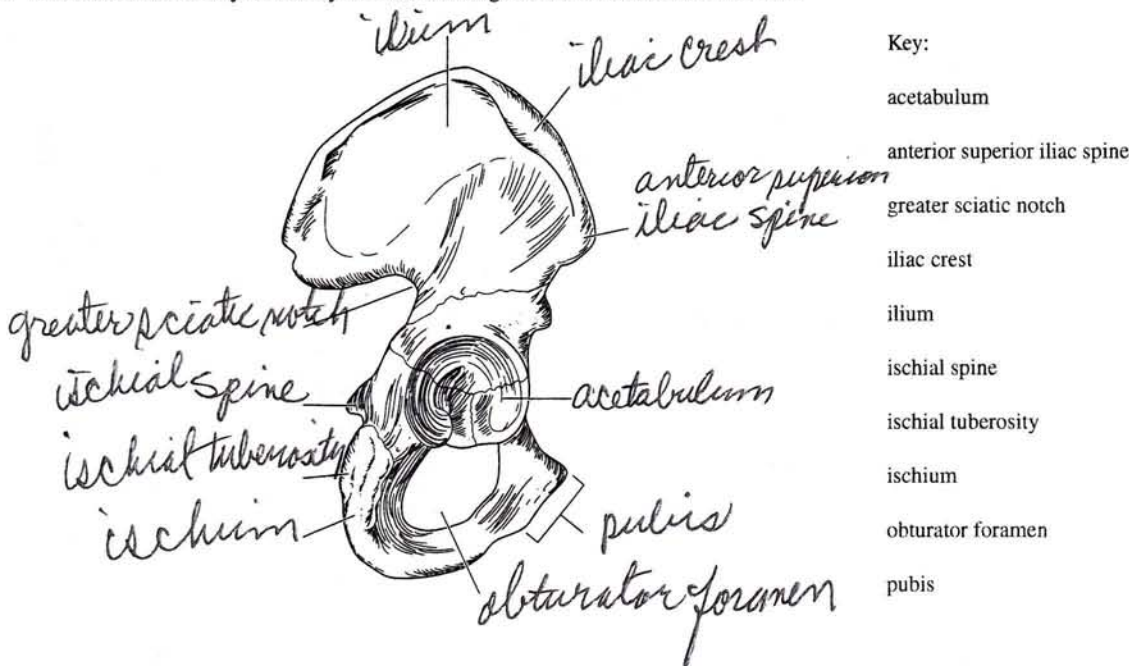 ilium
iliac crest
anterior superior
iliac spine
greater sciatic notch
ischial spine
acetabulum
ischial tuberosity
ischium
pubis
obturator foramen
Key:
acetabulum
anterior superior iliac spine
greater sciatic notch
iliac crest
ilium
ischial spine
ischial tuberosity
ischium
obturator foramen
pubis